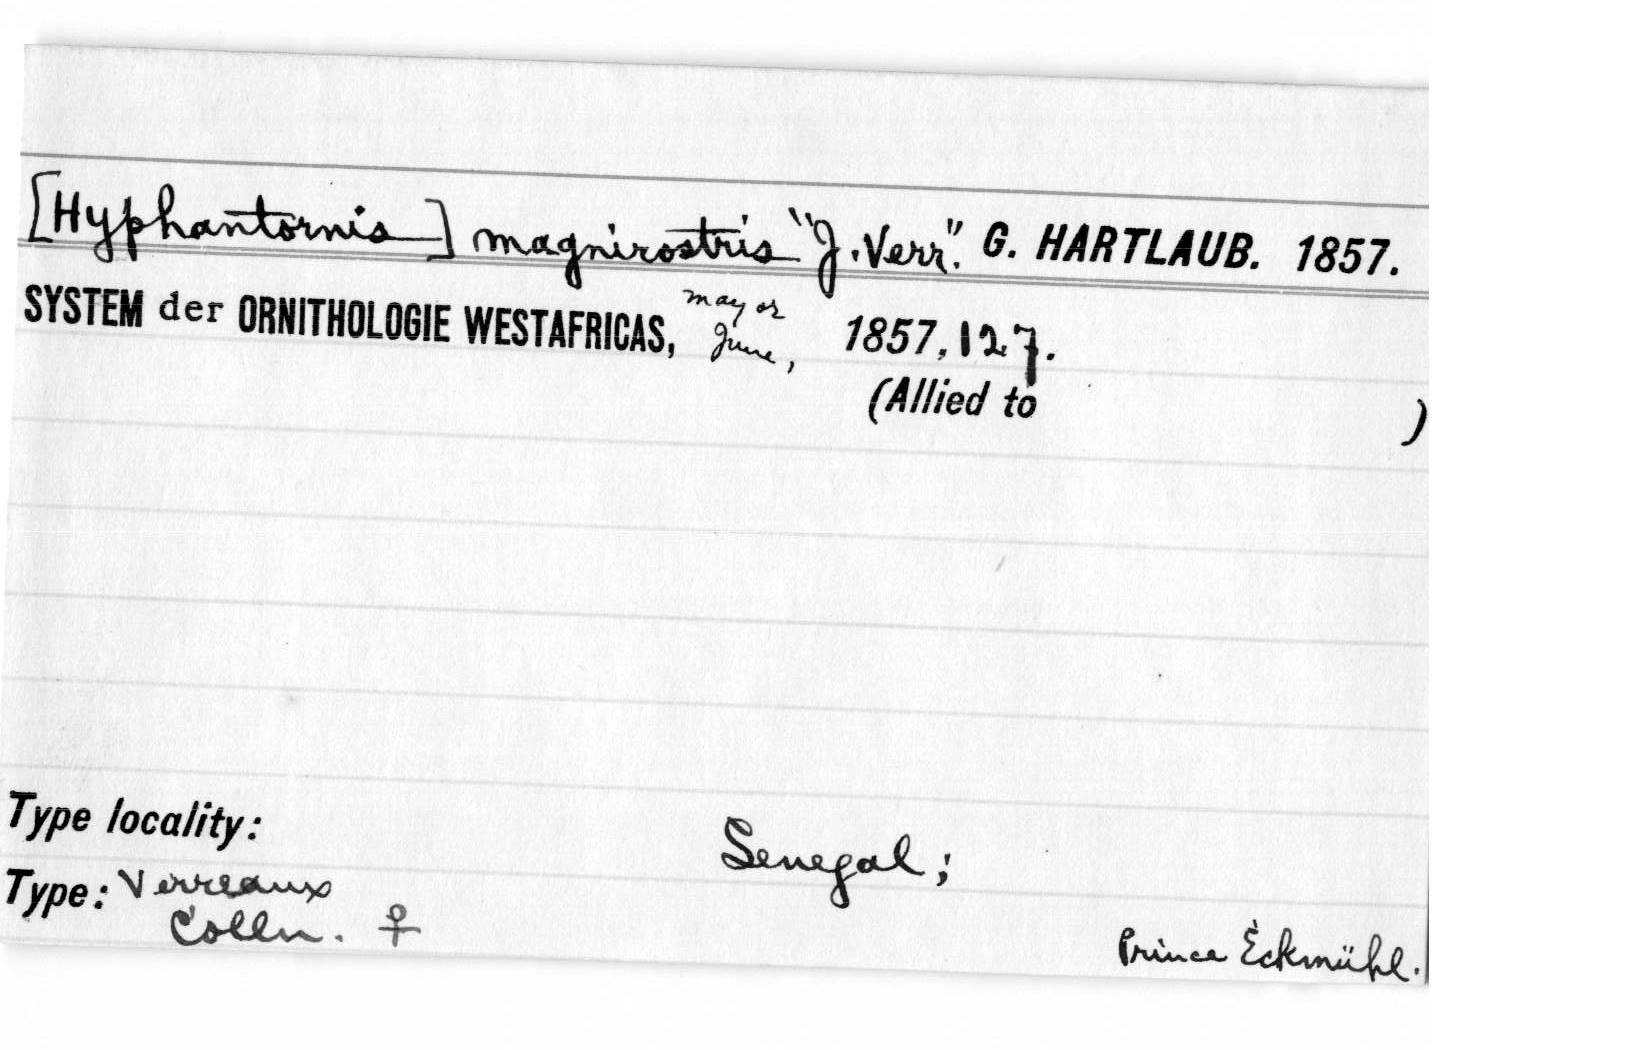 [Hyphantornis] magnirostris "J. Verr." G. HARTLAUB. 1857.
SYSTEM der ORNITHOLOGIE WESTAFRICAS, may or June, 1857, 127.
(Allied to )
Type locality: Senegal;
Type: Verreaux
Colln. ♀
Prince Eckmühl.